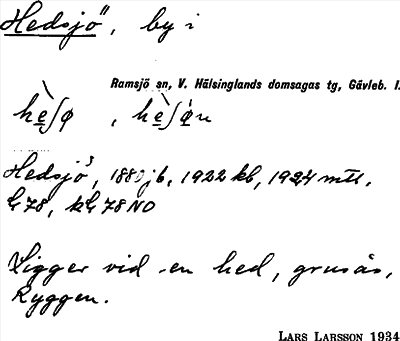 Hedsjö, by i
Ramsjö sn, V. Hälsinglands domsagas tg, Gävleb. l.
hè̱ʃø, hè̱ʃø̱n
Hedsjö, 1880 jb, 1922 kb, 1924 mtl,
G 78, kG 78 NO
Ligger vid en hed, grusås,
Ryggen.
LARS LARSSON 1934